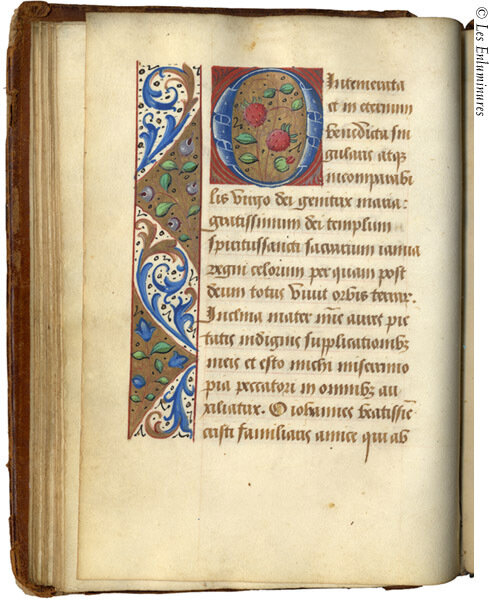 O Intemerata
et in eternum
benedicta sin
gularis atqꝫ
incomparabi
lis virgo dei genitrix maria.
gratissimum dei templum
spiritussancti sacrarium ianua
regni celorum per quam post
deum totus viuit orbis terrar.
Inclina mater mie aures pie
tatis indignis supplicationibꝫ
meis et esto michi miserrimo
pia peccatori in omnibꝫ au
xiliatrix. O iohannes beatissie
cristi familiaris amice qui ab
© Les Enluminures